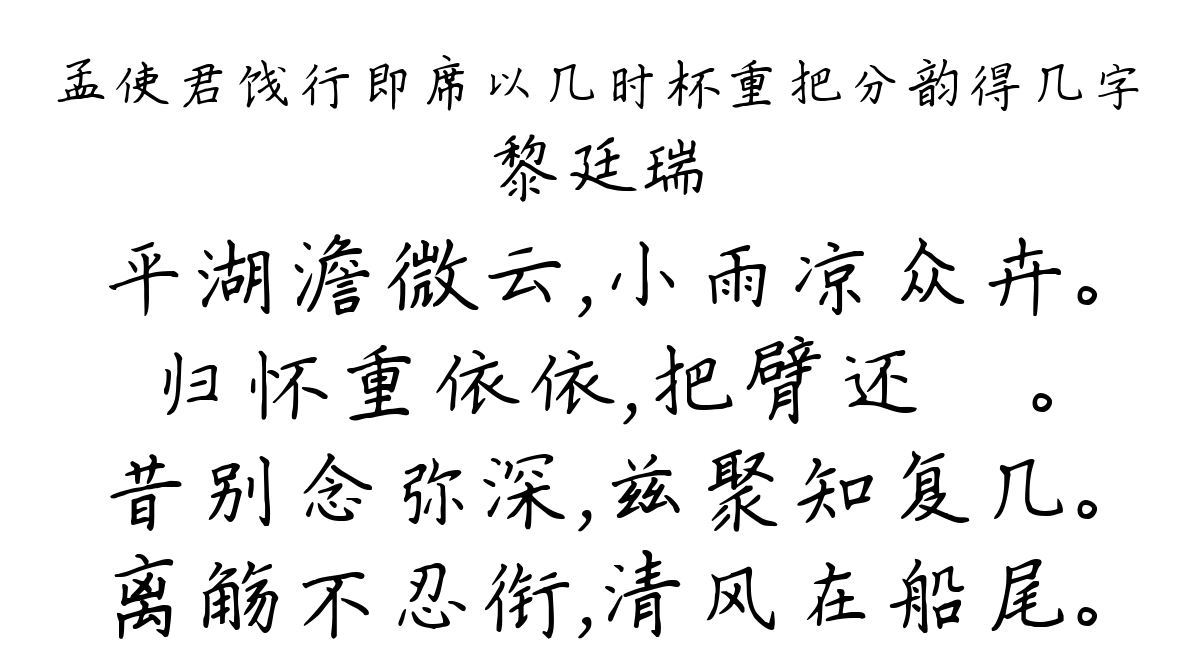 孟使君饯行即席以几时杯重把分韵得几字
黎廷瑞
平湖澹微云,小雨凉众卉。
归怀重依依,把臂还 。
昔别念弥深,兹聚知复几。
离觞不忍衔,清风在船尾。